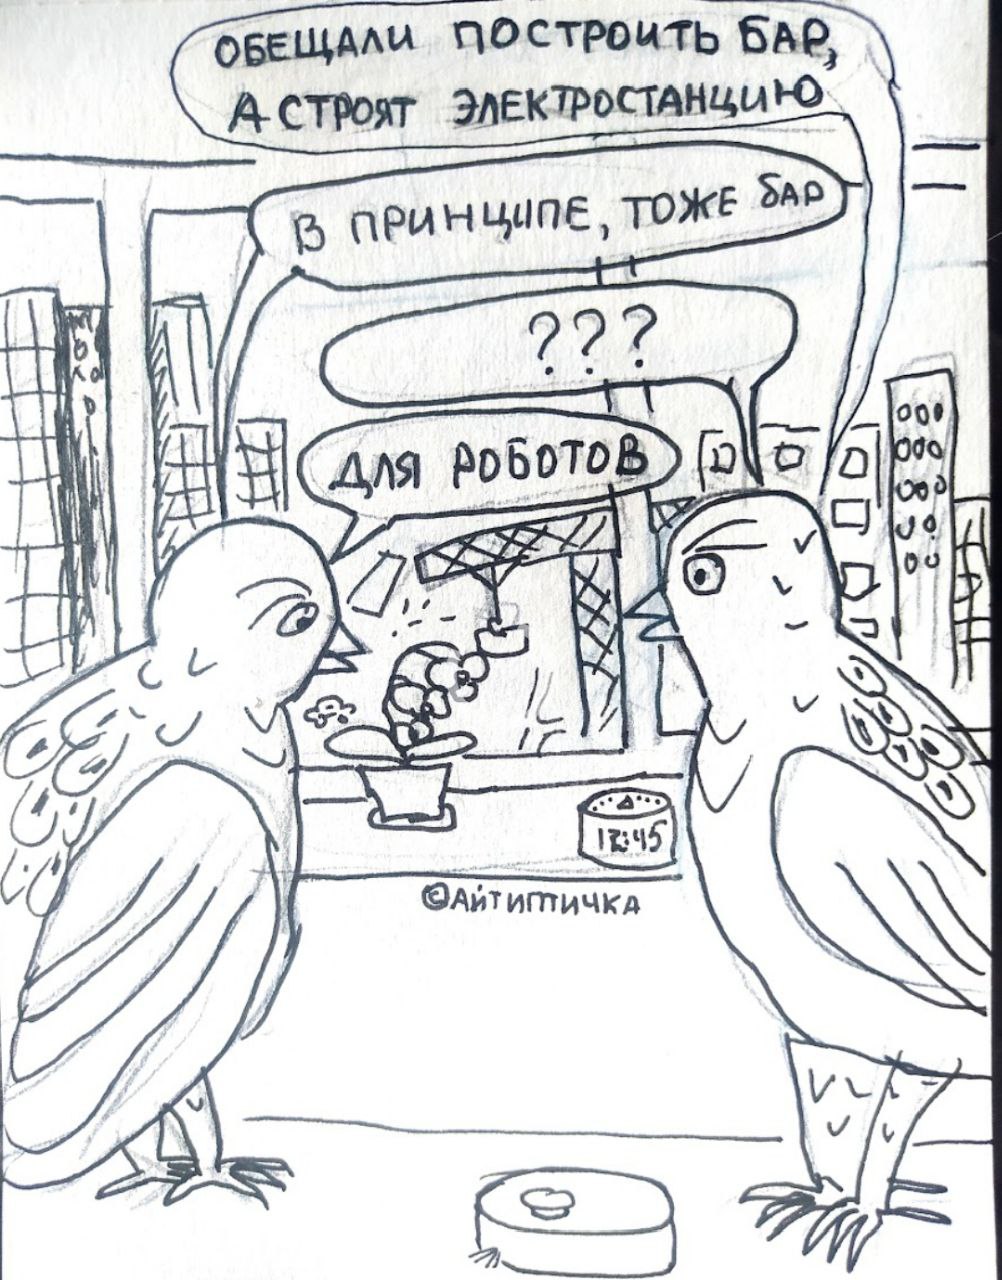 ОБЕЩАЛИ ПОСТРОИТЬ БАР,
А СТРОЯТ ЭЛЕКТРОСТАНЦИЮ
В ПРИНЦИПЕ, ТОЖЕ БАР
???
ДЛЯ РОБОТОВ
12:45
©АЙТИПТИЧКА